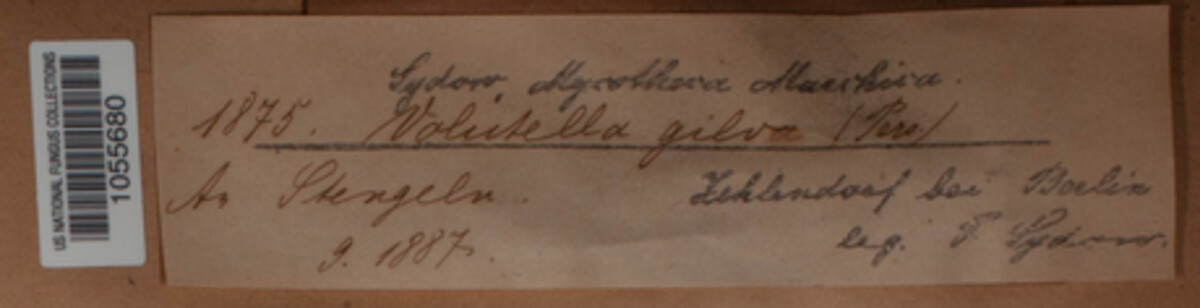 US NATIONAL FUNGUS COLLECTIONS
1055680
Sydow, Mycotheca Marchica.
1875. Volutella gilva (Pers.)
An Stengeln.
Zehlendorf bei Berlin
9. 1887.
leg. P. Sydow.